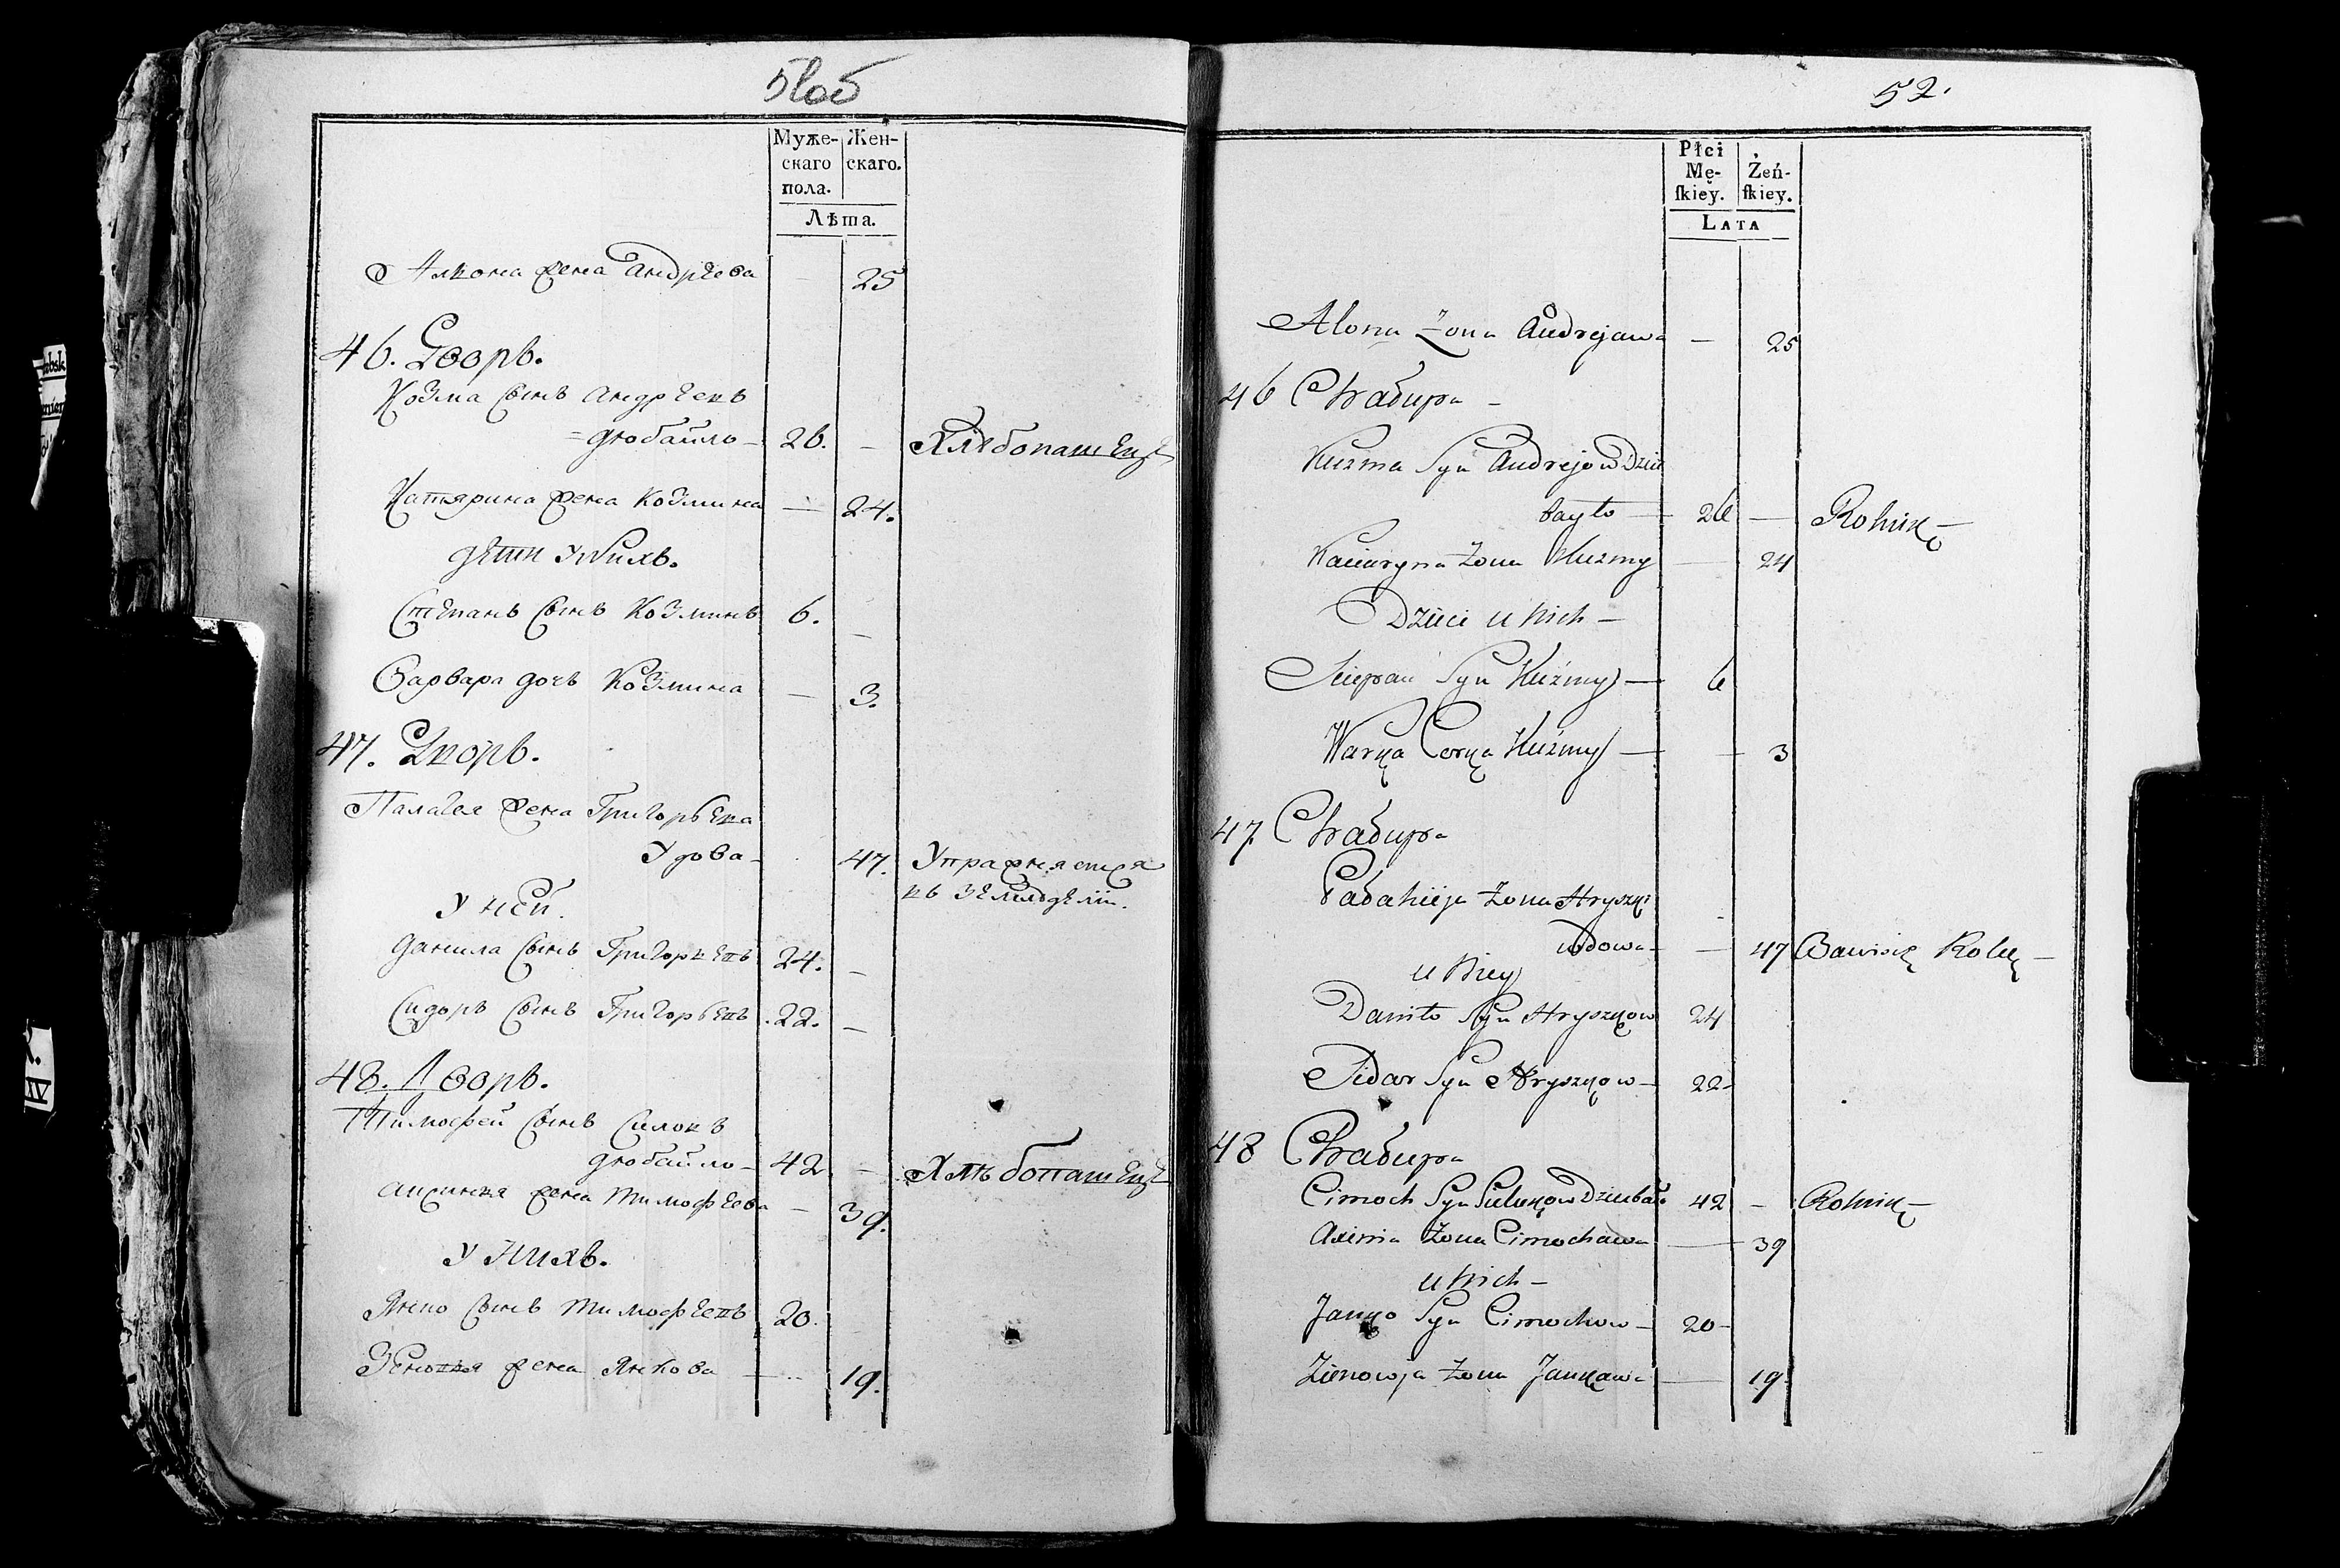 51об
Муже-
скаго
пола.
Жен-
скаго.
Лѣта.
Алюона жена Андрѣева — 25
46. Дворъ.
Козма сынъ Андрѣевъ
=дюбайло — 26. — Хлѣбопашецъ
Катярина жена Козмина — 24.
дѣти у нихъ.
Степанъ сынъ Козминъ 6. —
Варвара дочь Козмина — 3.
47. Дворъ.
Палагея жена Григорьева
Удова — 47. Упражняется
въ земледѣліи.
у ней.
Данила сынъ Григорьевъ 24. —
Сидоръ сынъ Григорьевъ 22. —
48. Дворъ.
Тимофей сынъ Силовъ
дюбайло — 42 — Хлѣбопашецъ
аксиния жена Тимофѣева — 39.
у нихъ.
Янко сынъ Тимофѣевъ 20.
Зеновия жена Янкова — 19.
52.
Płci
Mę-
ſkiey.
Żeń-
ſkiey.
LATA
Alona Żona Andrejawa — 25
46 Chałupa —
Kuzma Syn Andrejow Dziu
bayło — 26 — Rolnik —
Kaciaryna Żona Kuzmy — 24
Dzieci u nich —
Sciepan Syn Kuźmy — 6
Warka Corka Kuźmy — 3
47 Chałupa
Pałahieja Żona Hryszki
wdowa — — 47 Bawi się Rolą —
u niey
Daniło Syn Hryszkow 24
Sidor Syn Hryszkow — 22
48 Chałupa
Cimoch Syn Siłukow Dziubało 42 — Rolnik —
Axinia Żona Cimochawa — 39
u nich —
Janko Syn Cimochow — 20 —
Zienowja Żona Jankawa — 19